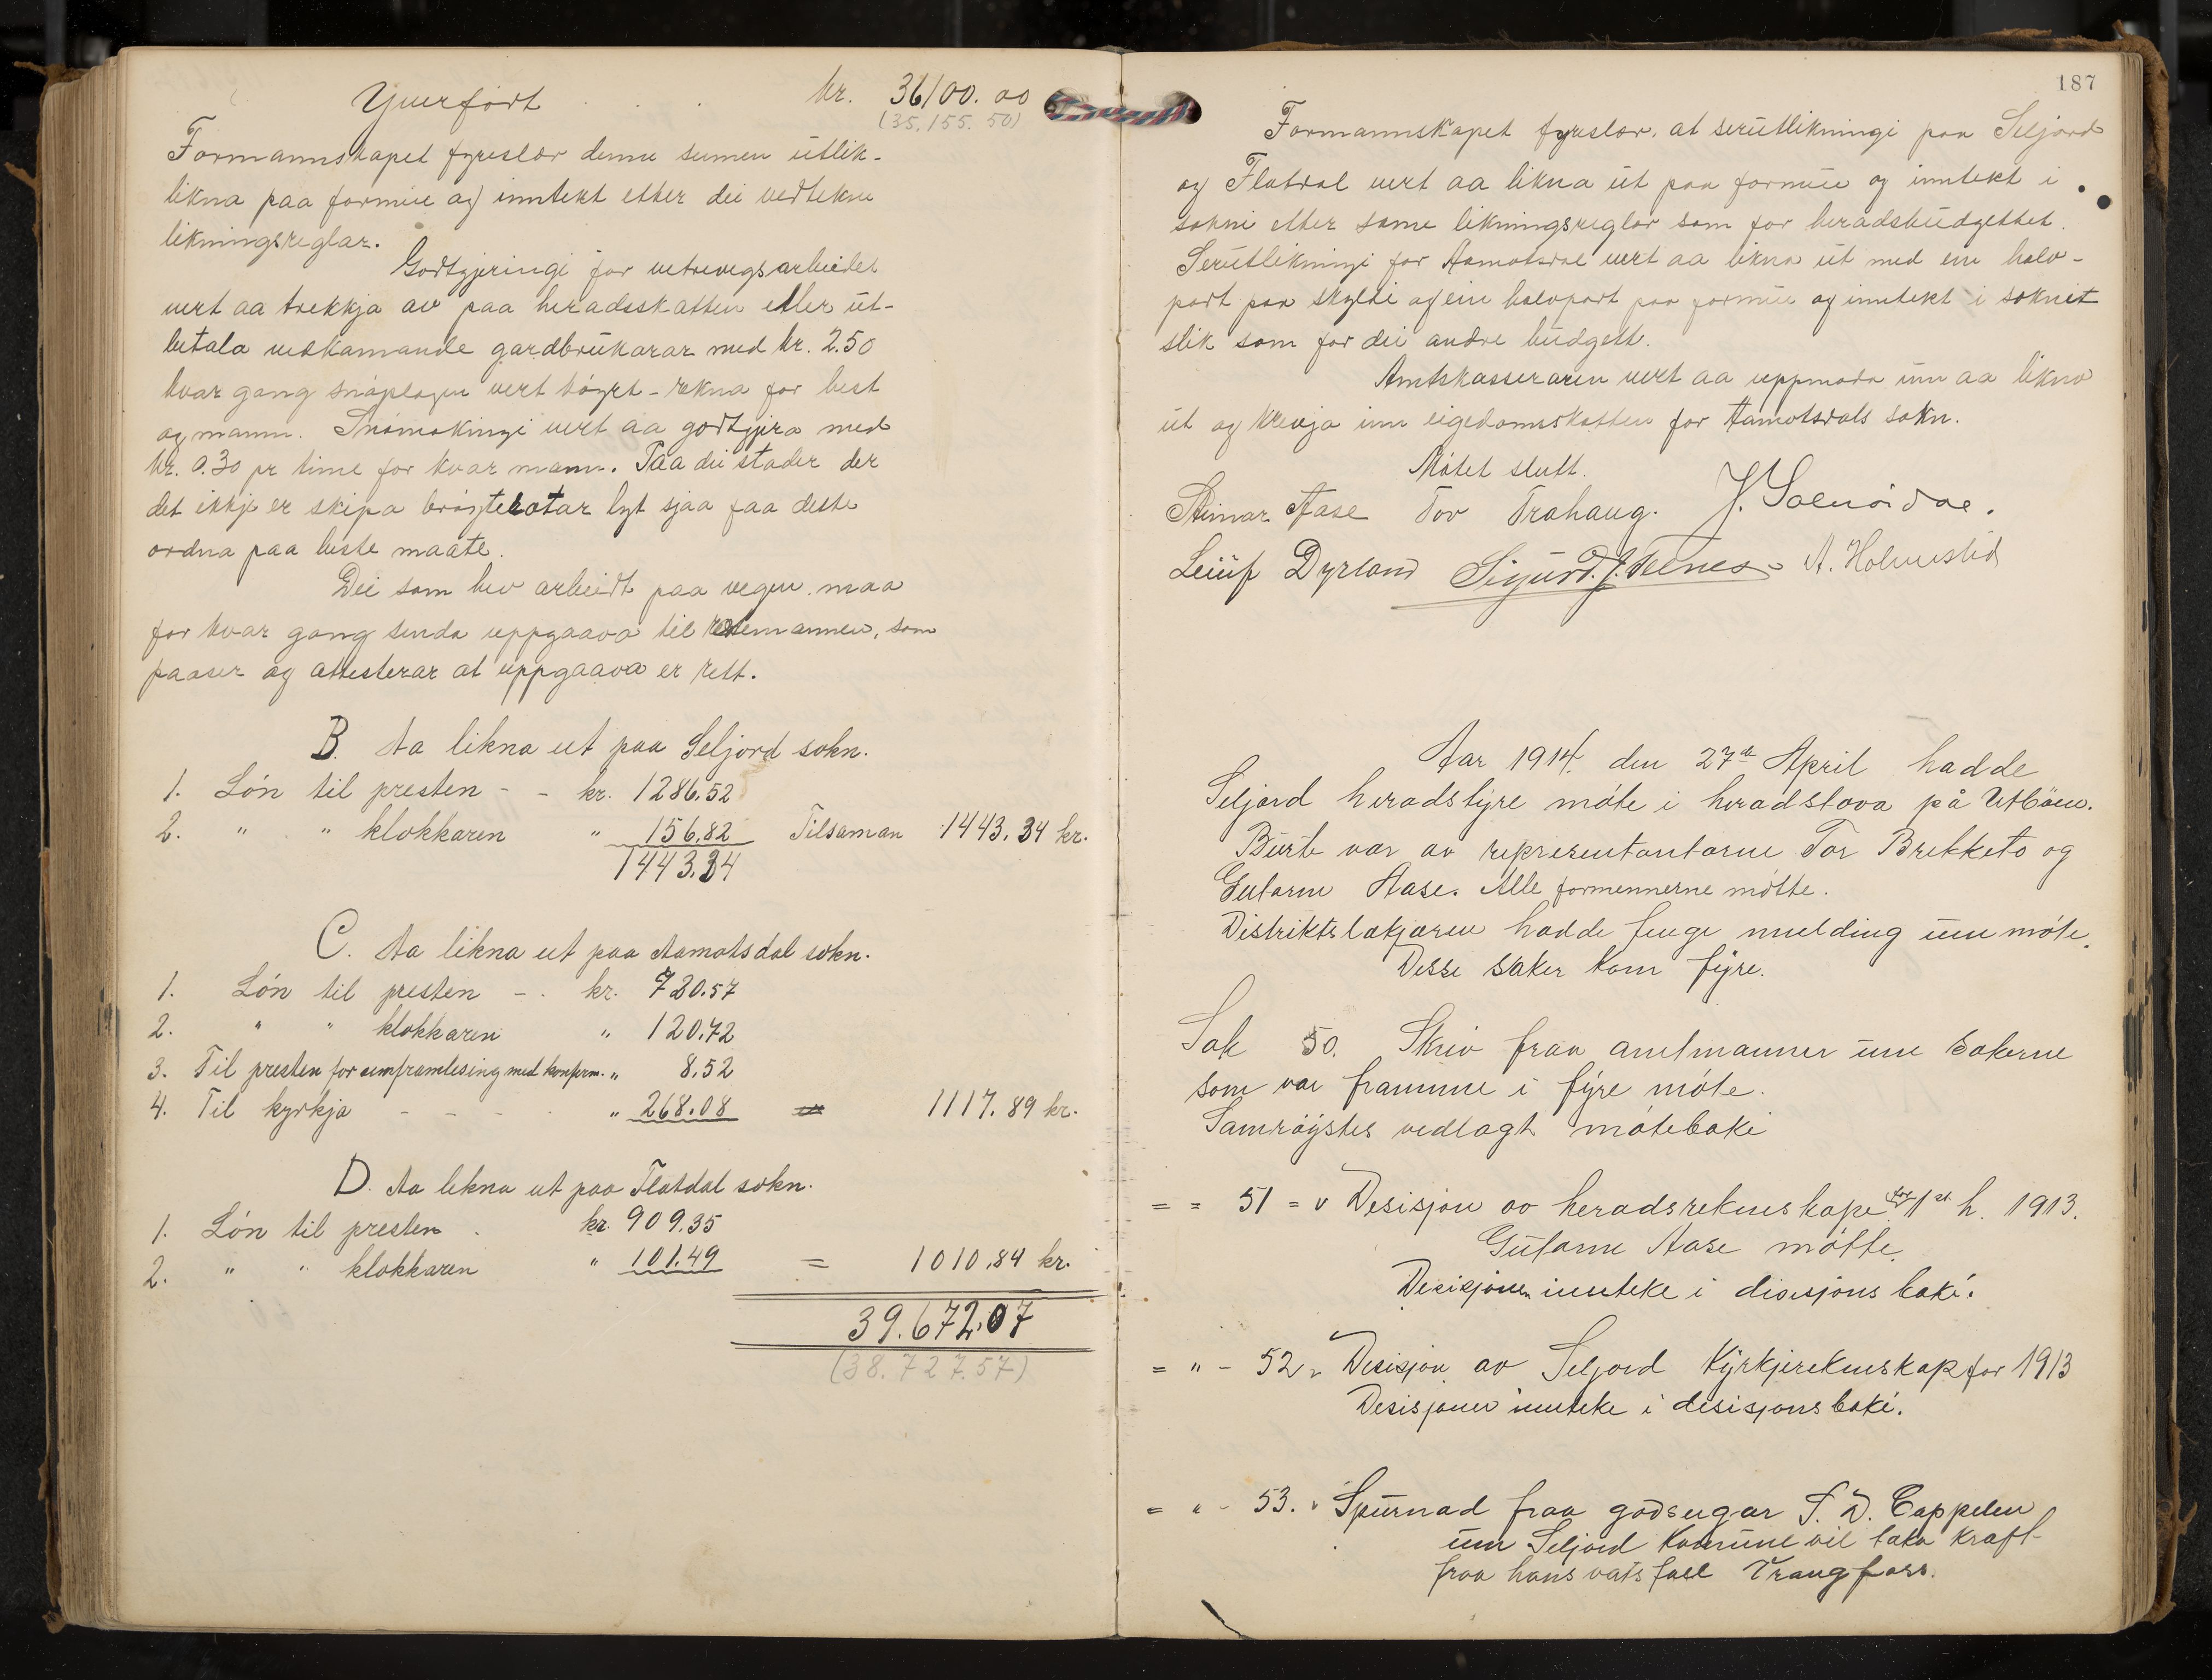 Yverfört . . . kr. 36100.00
(35.155.50)
Formannskapet fyreslær denne sumen utlik-
likna paa formue og inntekt etter dei vedtekne
likningsreglar.
Godtgjeringi for vetrevegsarbeidet
vert aa trekkja av paa heradsskatten eller ut-
betala vedkomande gardbrukarar med kr. 2.50
kvar gang snöplogen vert köyrt - rekna for hest
og mann. Snömokingi vert aa godtgjera med
kr. 0.30 pr time for kvar mann. Paa dei stader der
det ikkje er skipa bröytelotar lyt sjaa faa dette
ordna paa beste maate.
Dei som hev arbeidt paa vegen maa
for kvar gang senda uppgaava til rodemannen, som
paaser og attesterar at uppgaava er rett.
B. Aa likna ut paa Seljord sokn.
1. Lön til presten - - kr. 1286.52
2. " " klokkaren " 156.82 Tilsaman 1443.34 kr.
1443.34
C. Aa likna ut paa Aamotsdal sokn.
1. Lön til presten - . kr. 720.57
2. " " klokkaren " 120.72
3. Til presten for umframlesing med konfirm. " 8.52
4. Til kyrkja - - - - " 268.08 = 1117.89 kr.
D. Aa likna ut paa Flatdal sokn.
1. Lön til presten . kr. 909.35
2. " " klokkaren " 101.49 = 1010.84 kr.
39.672.07
(38.727.57)
187
Formannskapet fyreslær, at serutlikningi paa Seljord
og Flatdal vert aa likna ut paa formue og inntekt i
sokni etter same likningsreglar som for heradsbudgettet.
Serutlikningi for Aamotsdal vert aa likna ut med ein halv-
part paa skyldi og ein halvpart paa formue og inntekt i soknet
slik som for dei andre budgett.
Amtskasseraren vert aa uppmoda um aa likna
ut og krevja inn eigedomsskatten for Aamotsdals sokn.
Mötet slutt.
Steinar Aase Tov Trahaug. J.
Leiuf Dyrland Sigurd. J. A. Holmestad
Aar 1914 den 27de April hadde
Seljord heradstyre möte i heradstova på Utböen.
Burte var av representantarne Tor Brekketo og
Gutorm Aase. Alle formennerne mötte.
Distriktslækjaren hadde fenge melding um möte.
Desse saker kom fyre.
Sak 50. Skriv fraa amtmannen um sakerne
som var framme i fyre möte.
Samröystes vedlagt möteboki
= = 51 = v Desisjon av heradsrekneskape for 1st h. 1913.
Gutorm Aase mötte.
Desisjonen innteke i disisjonsboki.
= " - 52 v Desisjon av Seljord Kyrkjerekneskap for 1913
Desisjonen innteke i desisjonsboki.
= " - 53. v Spurnad fraa godseigar S. D. Cappelen
um Seljord Komune vil taka kraft
fraa hans vatsfall Vrangfoss.